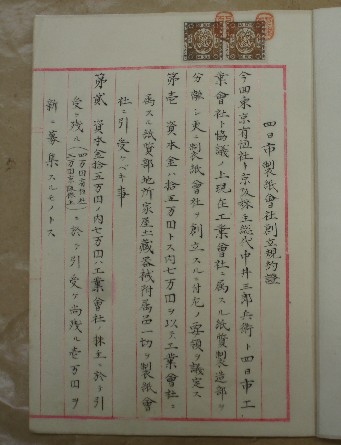 四日市製紙會社創立規約證
今回東京有恒社ト京阪株主総代中井三郎兵衛ト四日市工
業會社ト協議ノ上現在工業會社ニ属スル紙質製造部ヲ
分離シ更ニ製紙會社ヲ創立スルニ付左ノ要領ヲ議定ス
第壱 資本金ハ拾五万円トス内七万円ヲ以テ工業會社ニ
属スル紙質部地所家屋土蔵器械附属品一切ヲ製紙會
社ニ引受クベキ事
第貳 資本金拾五万円ノ内七万円ハ工業會社ノ株主ニ於テ引
受ケ残ル ニ於テ引受ケ尚残ル壱万円ヲ
新ニ募集スルモノトス